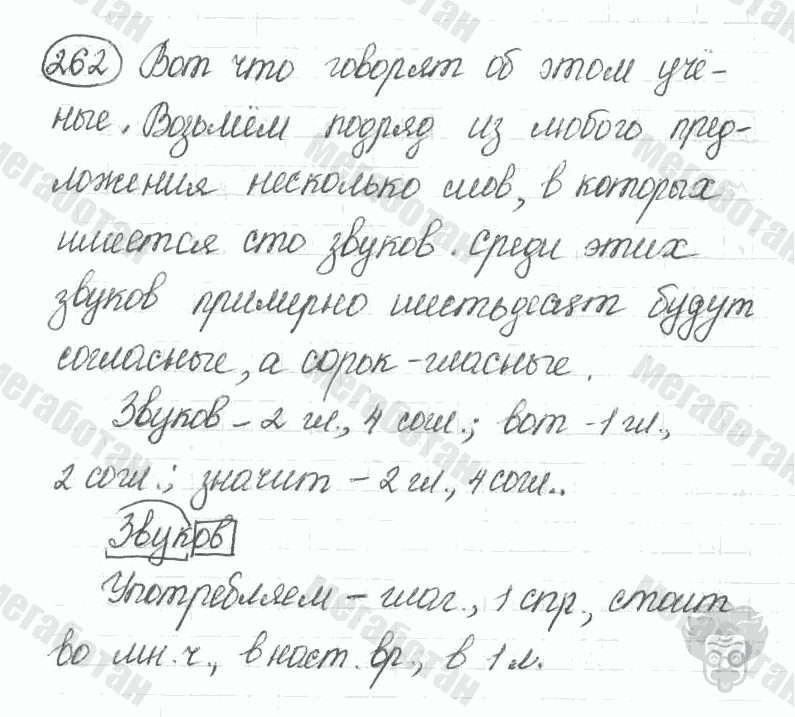 262 Вот что говорят об этом учё-
ные. Возьмём подряд из любого пред-
ложения несколько слов, в которых
имеется сто звуков. Среди этих
звуков примерно шестьдесят будут
согласные, а сорок - гласные.
Звуков - 2 гл., 4 согл.; вот - 1 гл.,
2 согл.; значит - 2 гл., 4 согл..
Звуков
Употребляем - глаг., 1 спр., стоит
во мн.ч., в наст. вр., в 1 л.
мегаботан